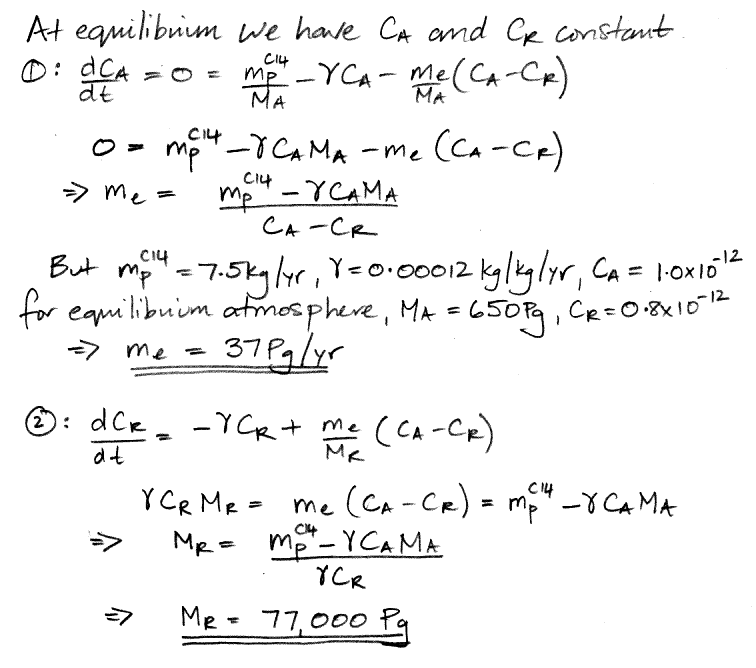 At equilibrium we have C_A and C_R constant.
①: dC_A/dt = 0 = m_p^C14/M_A - γC_A - m_e/M_A (C_A - C_R)
0 = m_p^C14 - γC_A M_A - m_e (C_A - C_R)
⇒ m_e = (m_p^C14 - γC_A M_A)/(C_A - C_R)
But m_p^C14 = 7.5kg/yr, γ = 0.00012 kg/kg/yr, C_A = 1.0x10^-12
for equilibuium atmosphere, M_A = 650Pg, C_R = 0.8x10^-12
⇒ m_e = 37Pg/yr
②: dC_R/dt = -γC_R + m_e/M_R (C_A - C_R)
γC_R M_R = m_e (C_A - C_R) = m_p^C14 - γC_A M_A
⇒ M_R = (m_p^C14 - γC_A M_A)/(γC_R)
⇒ M_R = 77,000 Pg